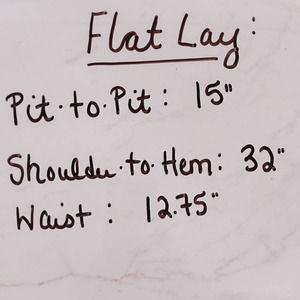 Flat Lay:
Pit·to·Pit: 15"
Shoulder·to·Hem: 32"
Waist: 12.75"